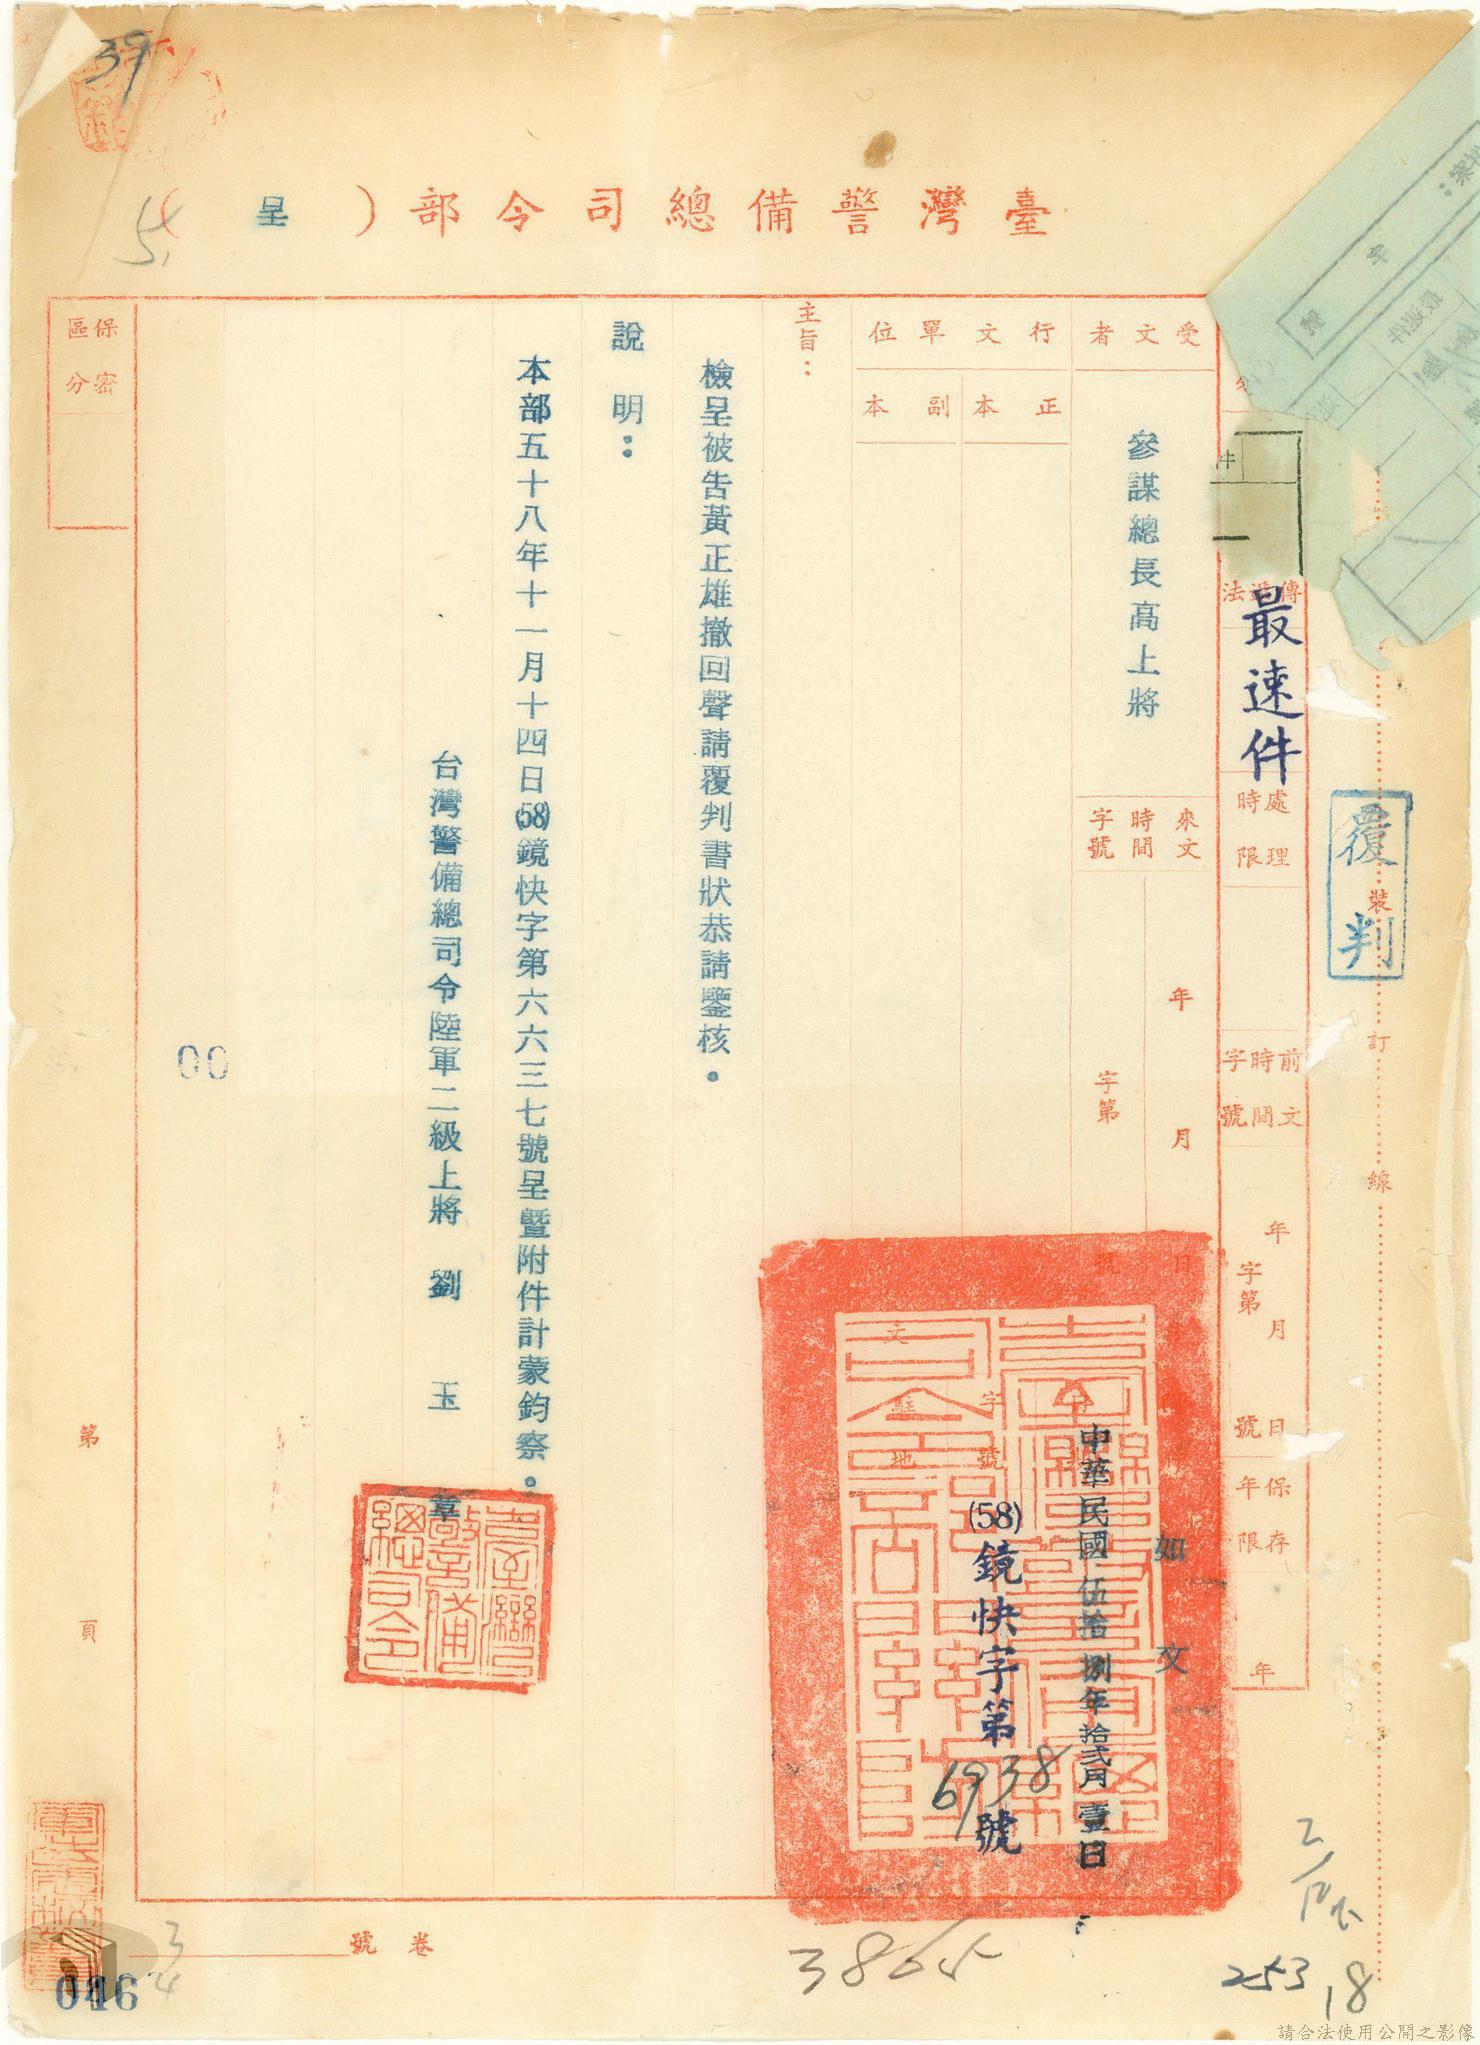 39
臺灣警備總司令部（呈）
5.
最速件
覆判
裝
訂
線
傳遞法
處理時限
前文時間字號
年 月 日
字第 號
保存年限
年
受文者
參謀總長高上將
來文時間字號
年 月 日
字第 號
行文單位
正本
副本
文
字號
駐地
如文
中華民國伍拾捌年拾貳月壹日
(58)鏡快字第6938號
主旨：
檢呈被告黃正雄撤回聲請覆判書狀恭請鑒核。
說明：
本部五十八年十一月十四日(58)鏡快字第六六三七號呈暨附件計蒙鈞察。
台灣警備總司令陸軍二級上將 劉玉章
臺灣警備總司令
保密區分
00
第 頁
卷號
3/4
3865
253
18
046
請合法使用公開之影像